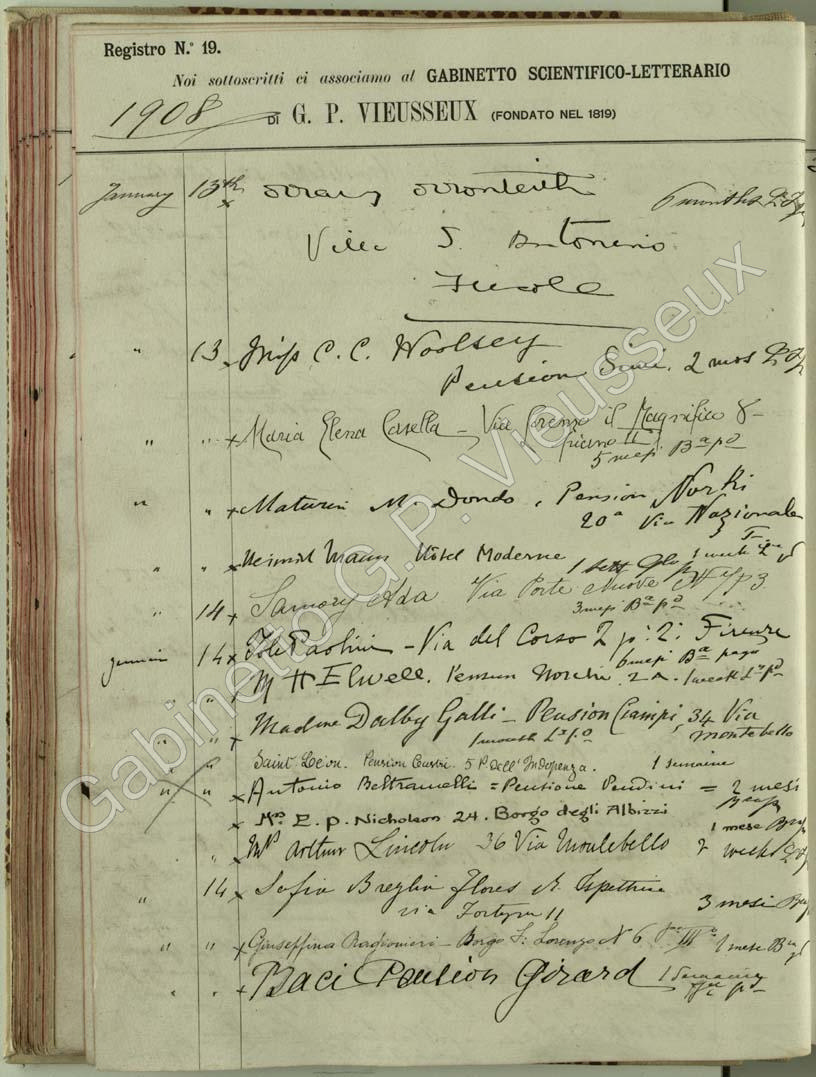 Registro N.° 19.
Noi sottoscritti ci associamo al GABINETTO SCIENTIFICO-LETTERARIO
1908 DI G. P. VIEUSSEUX (FONDATO NEL 1819)
January 13th 6 months
Villa S.
Fiesole
" 13 Miss C. C. Woolsey
Pension Simi. 2 mos
" " Maria Elena Casella - Via Lorenzo il Magnifico 8-
piano II
5 mesi Ba pa
" " Maturin M. Dondo, Pension Norki
20a Via Nazionale
" Hôtel Moderne 1 week
" 14 Samory Ada Via Porte Nuove
3 mesi Ba pa
14 Paolini - Via del Corso 2 p: 2: Firenze
6 mesi Ba paga
" " M H Elwell. Pension 2A. 1 week
" " Madme Dalby Galli - Pension Ciampi, 34 Via
1 month Montebello
" " Saint Léon. Pension 5 P. Dell' Indepenza. 1 semaine
" " Antonio Beltramelli = Pensione Pendini = 2 mesi
Mrs. E. P. Nicholson 24. Borgo degli Albizzi
1 mese
" Mrs Arthur Lincoln 36 Via Montebello 2 weeks
" 14 Sofia Breglia Flores
via 11 3 mesi
" " Giuseppina Ragionieri - Borgo S: Lorenzo N 6 1 mese
" " Baci Pension Girard 1
Gabinetto G.P. Vieusseux